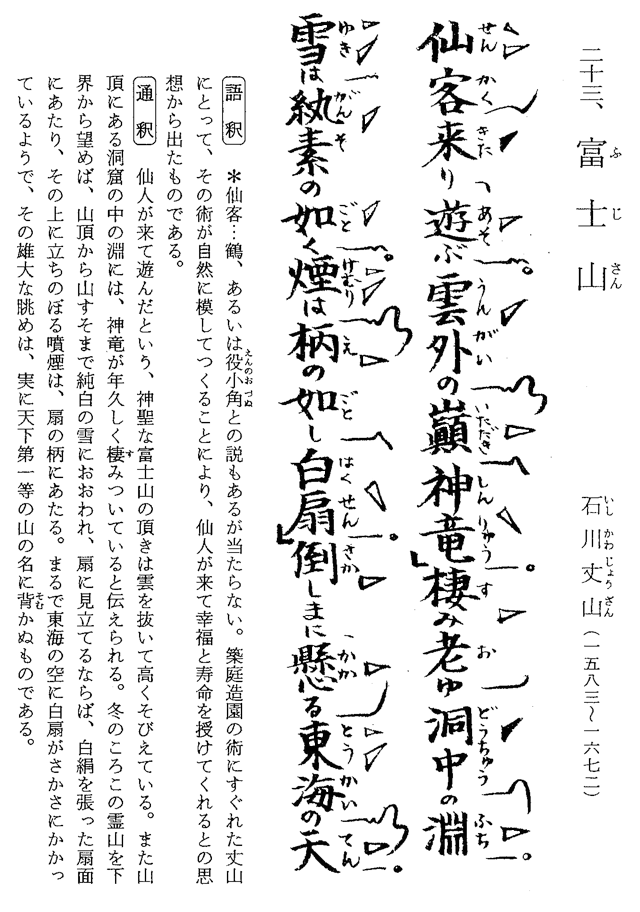 二十三、富士山
石川丈山(一五八三〜一六七二)
仙客来り遊ぶ雲外の巓神竜棲み老ゆ洞中の淵
雪は紈素の如く煙は柄の如し白扇倒しまに懸る東海の天
語釈 *仙客…鶴、あるいは役小角との説もあるが当たらない。築庭造園の術にすぐれた丈山
にとって、その術が自然に模してつくることにより、仙人が来て幸福と寿命を授けてくれるとの思
想から出たものである。
通釈 仙人が来て遊んだという、神聖な富士山の頂きは雲を抜いて高くそびえている。また山
頂にある洞窟の中の淵には、神竜が年久しく棲みついていると伝えられる。冬のころこの霊山を下
界から望めば、山頂から山すそまで純白の雪におおわれ、扇に見立てるならば、白絹を張った扇面
にあたり、その上に立ちのぼる噴煙は、扇の柄にあたる。まるで東海の空に白扇がさかさにかかっ
ているようで、その雄大な眺めは、実に天下第一等の山の名に背かぬものである。